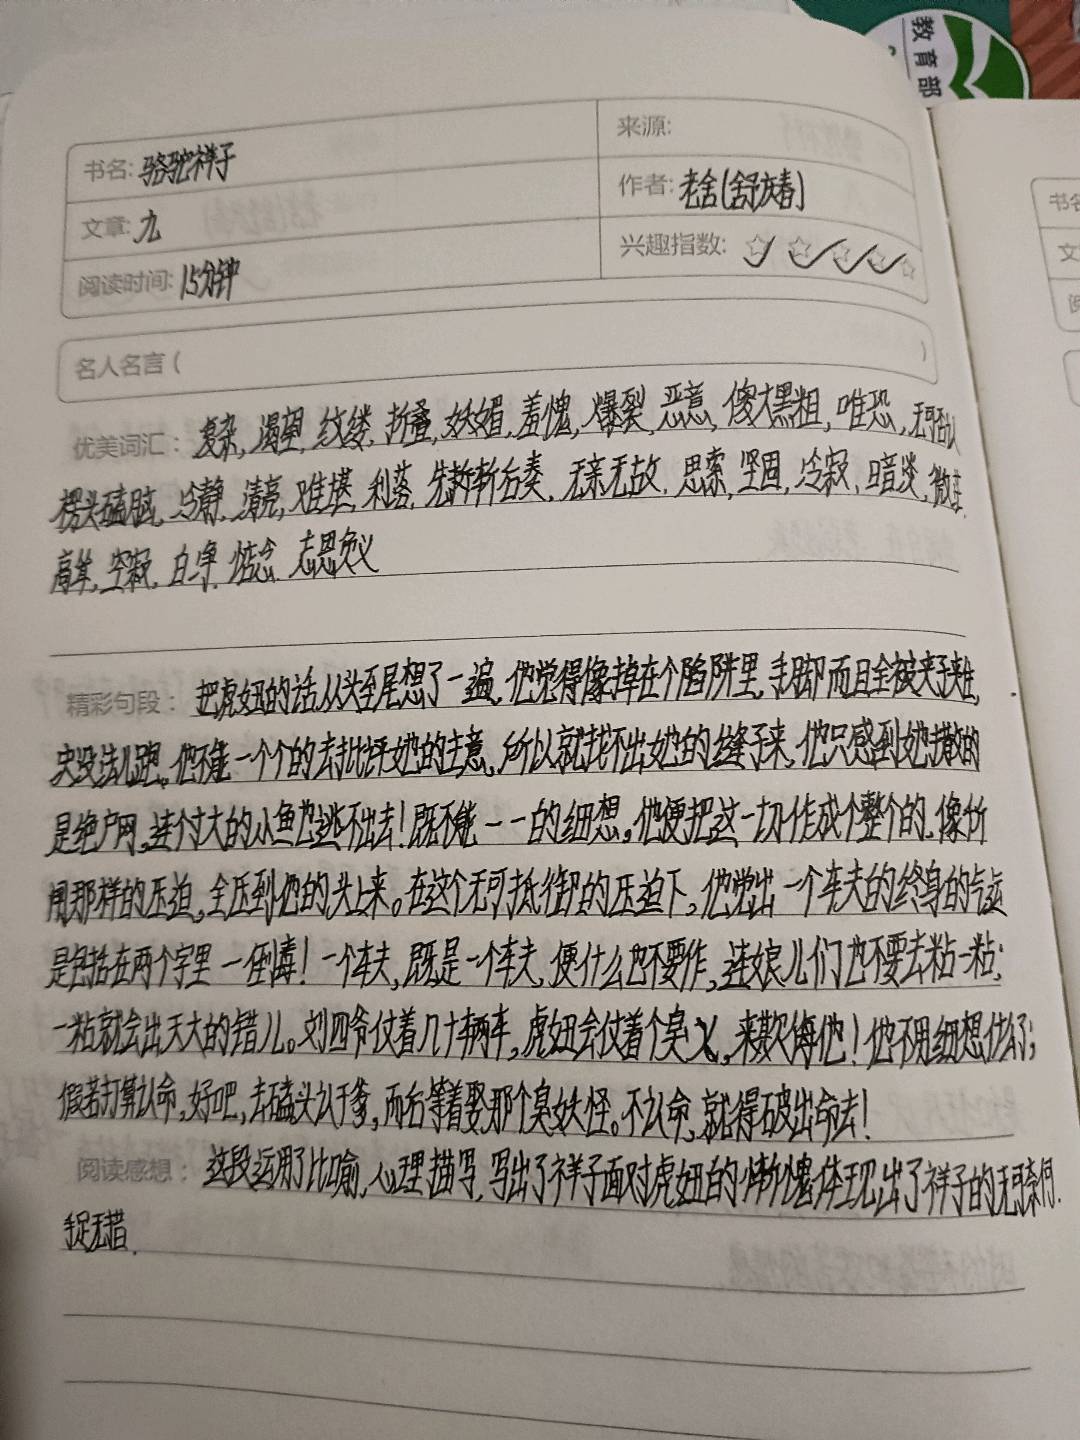 教育部
书名: 骆驼祥子
来源:
文章: 九
作者: 老舍(舒庆春)
阅读时间: 15分钟
兴趣指数:
名人名言 ( )
优美词汇: 复杂, 渴望, 纹缕, 折叠, 妖媚, 羞愧, 爆裂, 恶意, 傻大黑粗, 唯恐,
楞头磕脑, 冷静, 清亮, 难堪, 利落, 先斩后奏, 无亲无故, 思索, 坚固, 冷寂, 暗淡, 微弱,
高耸, 空寂, 白净, 惦念, 忘恩负义
精彩句段: 把虎妞的话从头至尾想了一遍, 他觉得像掉在个陷阱里, 手脚而且全被夹子夹住,
决没法儿跑。他不能一个个的去批评她的主意, 所以就找不出她的缝子来, 他只感到她撒的
是绝户网, 连个寸大的小鱼也逃不出去! 既不能一一的细想, 他便把这一切作成个整个的, 像
闸那样的压迫, 全压到他的头上来。在这个无可抵御的压迫下, 他觉出一个车夫的终身的气运
是包括在两个字里—倒霉! 一个车夫, 既是一个车夫, 便什么也不要作, 连娘儿们也不要去粘一粘;
一粘就会出天大的错儿。刘四爷仗着几十辆车, 虎妞会仗着个臭X, 来欺侮他! 他不用细想什么了;
假若打算认命, 好吧, 去磕头认干爹, 而后等着娶那个臭妖怪。不认命, 就得破出命去!
阅读感想: 这段运用了比喻, 心理描写, 写出了祥子面对虎妞的 体现出了祥子的无可奈何.
手足无措.
书名
文
阅